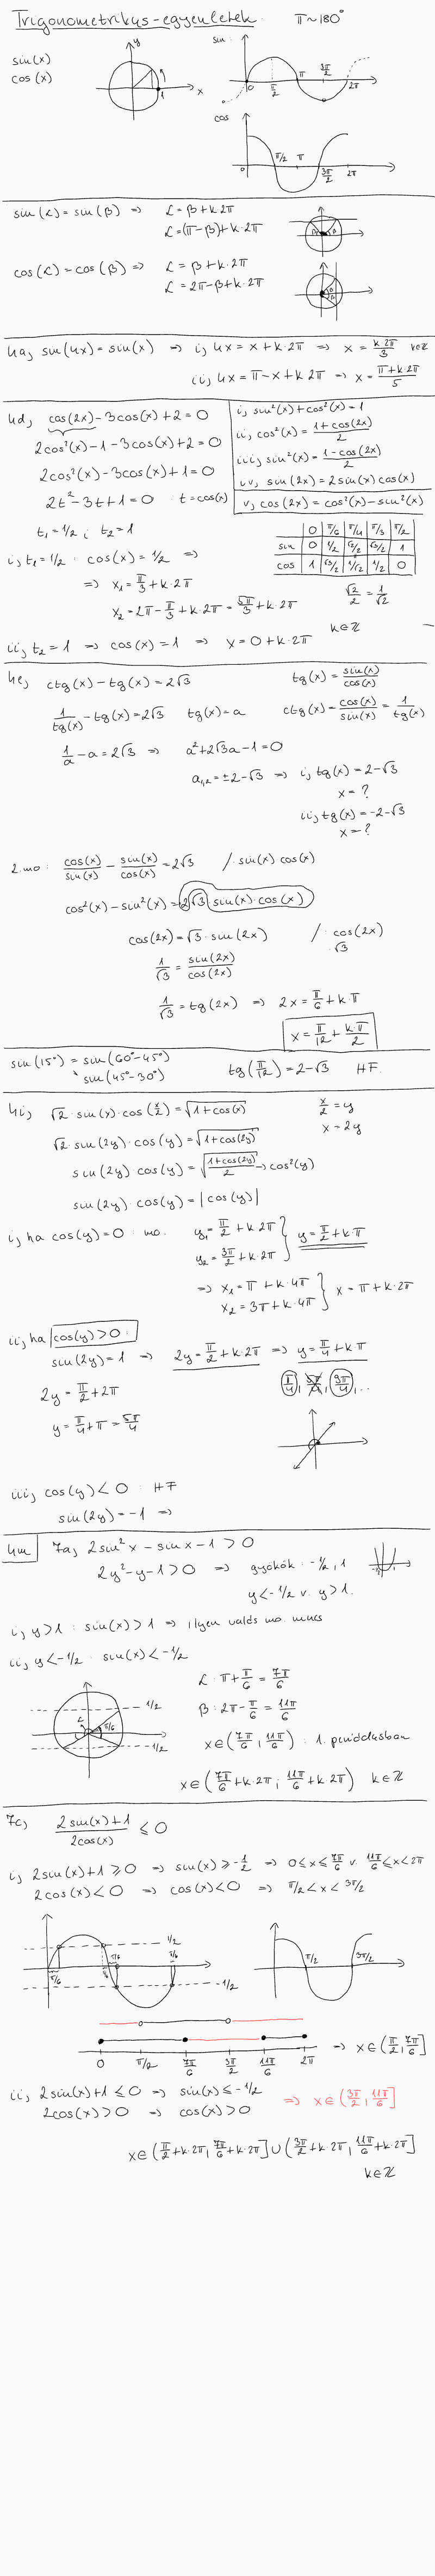 Trigonometrikus-egyenletek. π ~ 180°
sin(x)
cos(x)
y
x
1
sin:
0 π/2 π 3π/2 2π
cos
0 π/2 π 3π/2 2π
sin(α) = sin(β) ⇒ α = β + k·2π
α = (π-β) + k·2π
cos(α) = cos(β) ⇒ α = β + k·2π
α = 2π - β + k·2π
4a, sin(4x) = sin(x) ⇒ i, 4x = x + k·2π ⇒ x = k·2π/3 k∈ℤ
ii, 4x = π - x + k·2π ⇒ x = (π + k·2π)/5
4d, cos(2x) - 3cos(x) + 2 = 0
2cos²(x) - 1 - 3cos(x) + 2 = 0
2cos²(x) - 3cos(x) + 1 = 0
2t² - 3t + 1 = 0 t = cos(x)
i, sin²(x) + cos²(x) = 1
ii, cos²(x) = (1 + cos(2x))/2
iii, sin²(x) = (1 - cos(2x))/2
iv, sin(2x) = 2 sin(x) cos(x)
v, cos(2x) = cos²(x) - sin²(x)
t₁ = 1/2 ; t₂ = 1
0 π/6 π/4 π/3 π/2
sin 0 1/2 √2/2 √3/2 1
cos 1 √3/2 1/√2 1/2 0
√2/2 = 1/√2
i, t₁ = 1/2 : cos(x) = 1/2 ⇒
⇒ x₁ = π/3 + k·2π
x₂ = 2π - π/3 + k·2π = 5π/3 + k·2π
k∈ℤ
ii, t₂ = 1 ⇒ cos(x) = 1 ⇒ x = 0 + k·2π
4e, ctg(x) - tg(x) = 2√3
tg(x) = sin(x)/cos(x)
1/tg(x) - tg(x) = 2√3 tg(x) = a
ctg(x) = cos(x)/sin(x) = 1/tg(x)
1/a - a = 2√3 ⇒ a² + 2√3a - 1 = 0
a₁,₂ = ±2 - √3 ⇒ i, tg(x) = 2 - √3
x = ?
ii, tg(x) = -2 - √3
x = ?
2. mo: cos(x)/sin(x) - sin(x)/cos(x) = 2√3 /· sin(x) cos(x)
cos²(x) - sin²(x) = 2√3 sin(x)·cos(x)
cos(2x) = √3 · sin(2x) /: cos(2x)
√3
1/√3 = sin(2x)/cos(2x)
1/√3 = tg(2x) ⇒ 2x = π/6 + k·π
x = π/12 + k·π/2
sin(15°) = sin(60° - 45°)
sin(45° - 30°)
tg(π/12) = 2 - √3 HF.
4i, √2 · sin(x) · cos(x/2) = √(1 + cos(x))
x/2 = y
x = 2y
√2 · sin(2y) · cos(y) = √(1 + cos(2y))
sin(2y) cos(y) = √((1 + cos(2y))/2) → cos²(y)
sin(2y) · cos(y) = |cos(y)|
i, ha cos(y) = 0 : mo. y₁ = π/2 + k·2π
y₂ = 3π/2 + k·2π } y = π/2 + k·π
⇒ x₁ = π + k·4π
x₂ = 3π + k·4π } x = π + k·2π
ii, ha cos(y) > 0 :
sin(2y) = 1 ⇒ 2y = π/2 + k·2π ⇒ y = π/4 + k·π
2y = π/2 + 2π
π/4, 5π/4, 9π/4, ...
y = π/4 + π = 5π/4
iii, cos(y) < 0 : HF
sin(2y) = -1 ⇒
4m 7a, 2sin²x - sinx - 1 > 0
2y² - y - 1 > 0 ⇒ gyökök: -1/2, 1
y < -1/2 v. y > 1.
i, y > 1 : sin(x) > 1 ⇒ ilyen valós mo nincs
ii, y < -1/2 : sin(x) < -1/2
1/2
π/6
-1/2
α : π + π/6 = 7π/6
β : 2π - π/6 = 11π/6
x∈(7π/6, 11π/6) : 1. periódusban
x∈(7π/6 + k·2π, 11π/6 + k·2π) k∈ℤ
7c, (2sin(x) + 1)/2cos(x) ≤ 0
i, 2sin(x) + 1 ≥ 0 ⇒ sin(x) ≥ -1/2 ⇒ 0 ≤ x ≤ 7π/6 v. 11π/6 ≤ x < 2π
2cos(x) < 0 ⇒ cos(x) < 0 ⇒ π/2 < x < 3π/2
1/2
π/6 π/6 π/6
-1/2
π/2 3π/2
0 π/2 7π/6 3π/2 11π/6 2π ⇒ x∈(π/2, 7π/6]
ii, 2sin(x) + 1 ≤ 0 ⇒ sin(x) ≤ -1/2
2cos(x) > 0 ⇒ cos(x) > 0
⇒ x∈(3π/2, 11π/6]
x∈(π/2 + k·2π, 7π/6 + k·2π] ∪ (3π/2 + k·2π, 11π/6 + k·2π]
k∈ℤ